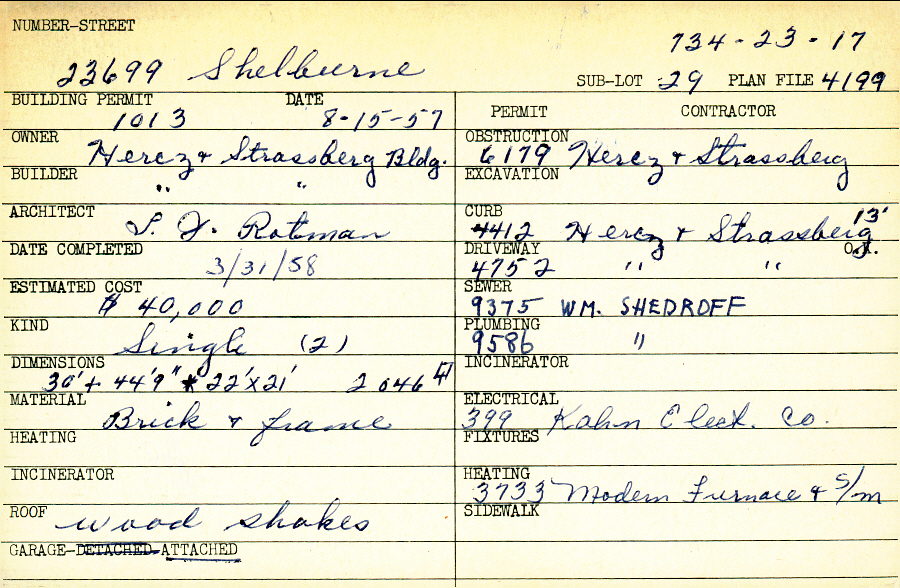 NUMBER-STREET
734-23-17
23699 Shelburne
SUB-LOT 29 PLAN FILE 4199
BUILDING PERMIT DATE
1013 8-15-57
PERMIT CONTRACTOR
OWNER
Hercz & Strassberg Bldg.
OBSTRUCTION
6179 Hercz & Strassberg
BUILDER
" "
EXCAVATION
ARCHITECT
S. F. Rotman
CURB
4412 Hercz & Strassberg 13' O.K.
DATE COMPLETED
3/31/58
DRIVEWAY
4752 " "
ESTIMATED COST
$ 40,000
SEWER
9375 WM. SHEDROFF
KIND
Single (2)
PLUMBING
9586 "
DIMENSIONS
30' + 44'9" * 22'X21' 2046
INCINERATOR
MATERIAL
Brick & frame
ELECTRICAL
399 Kahn Elect. Co.
HEATING
FIXTURES
INCINERATOR
HEATING
3733 Modern Furnace & S/m
ROOF
wood shakes
SIDEWALK
GARAGE-DETACHED-ATTACHED